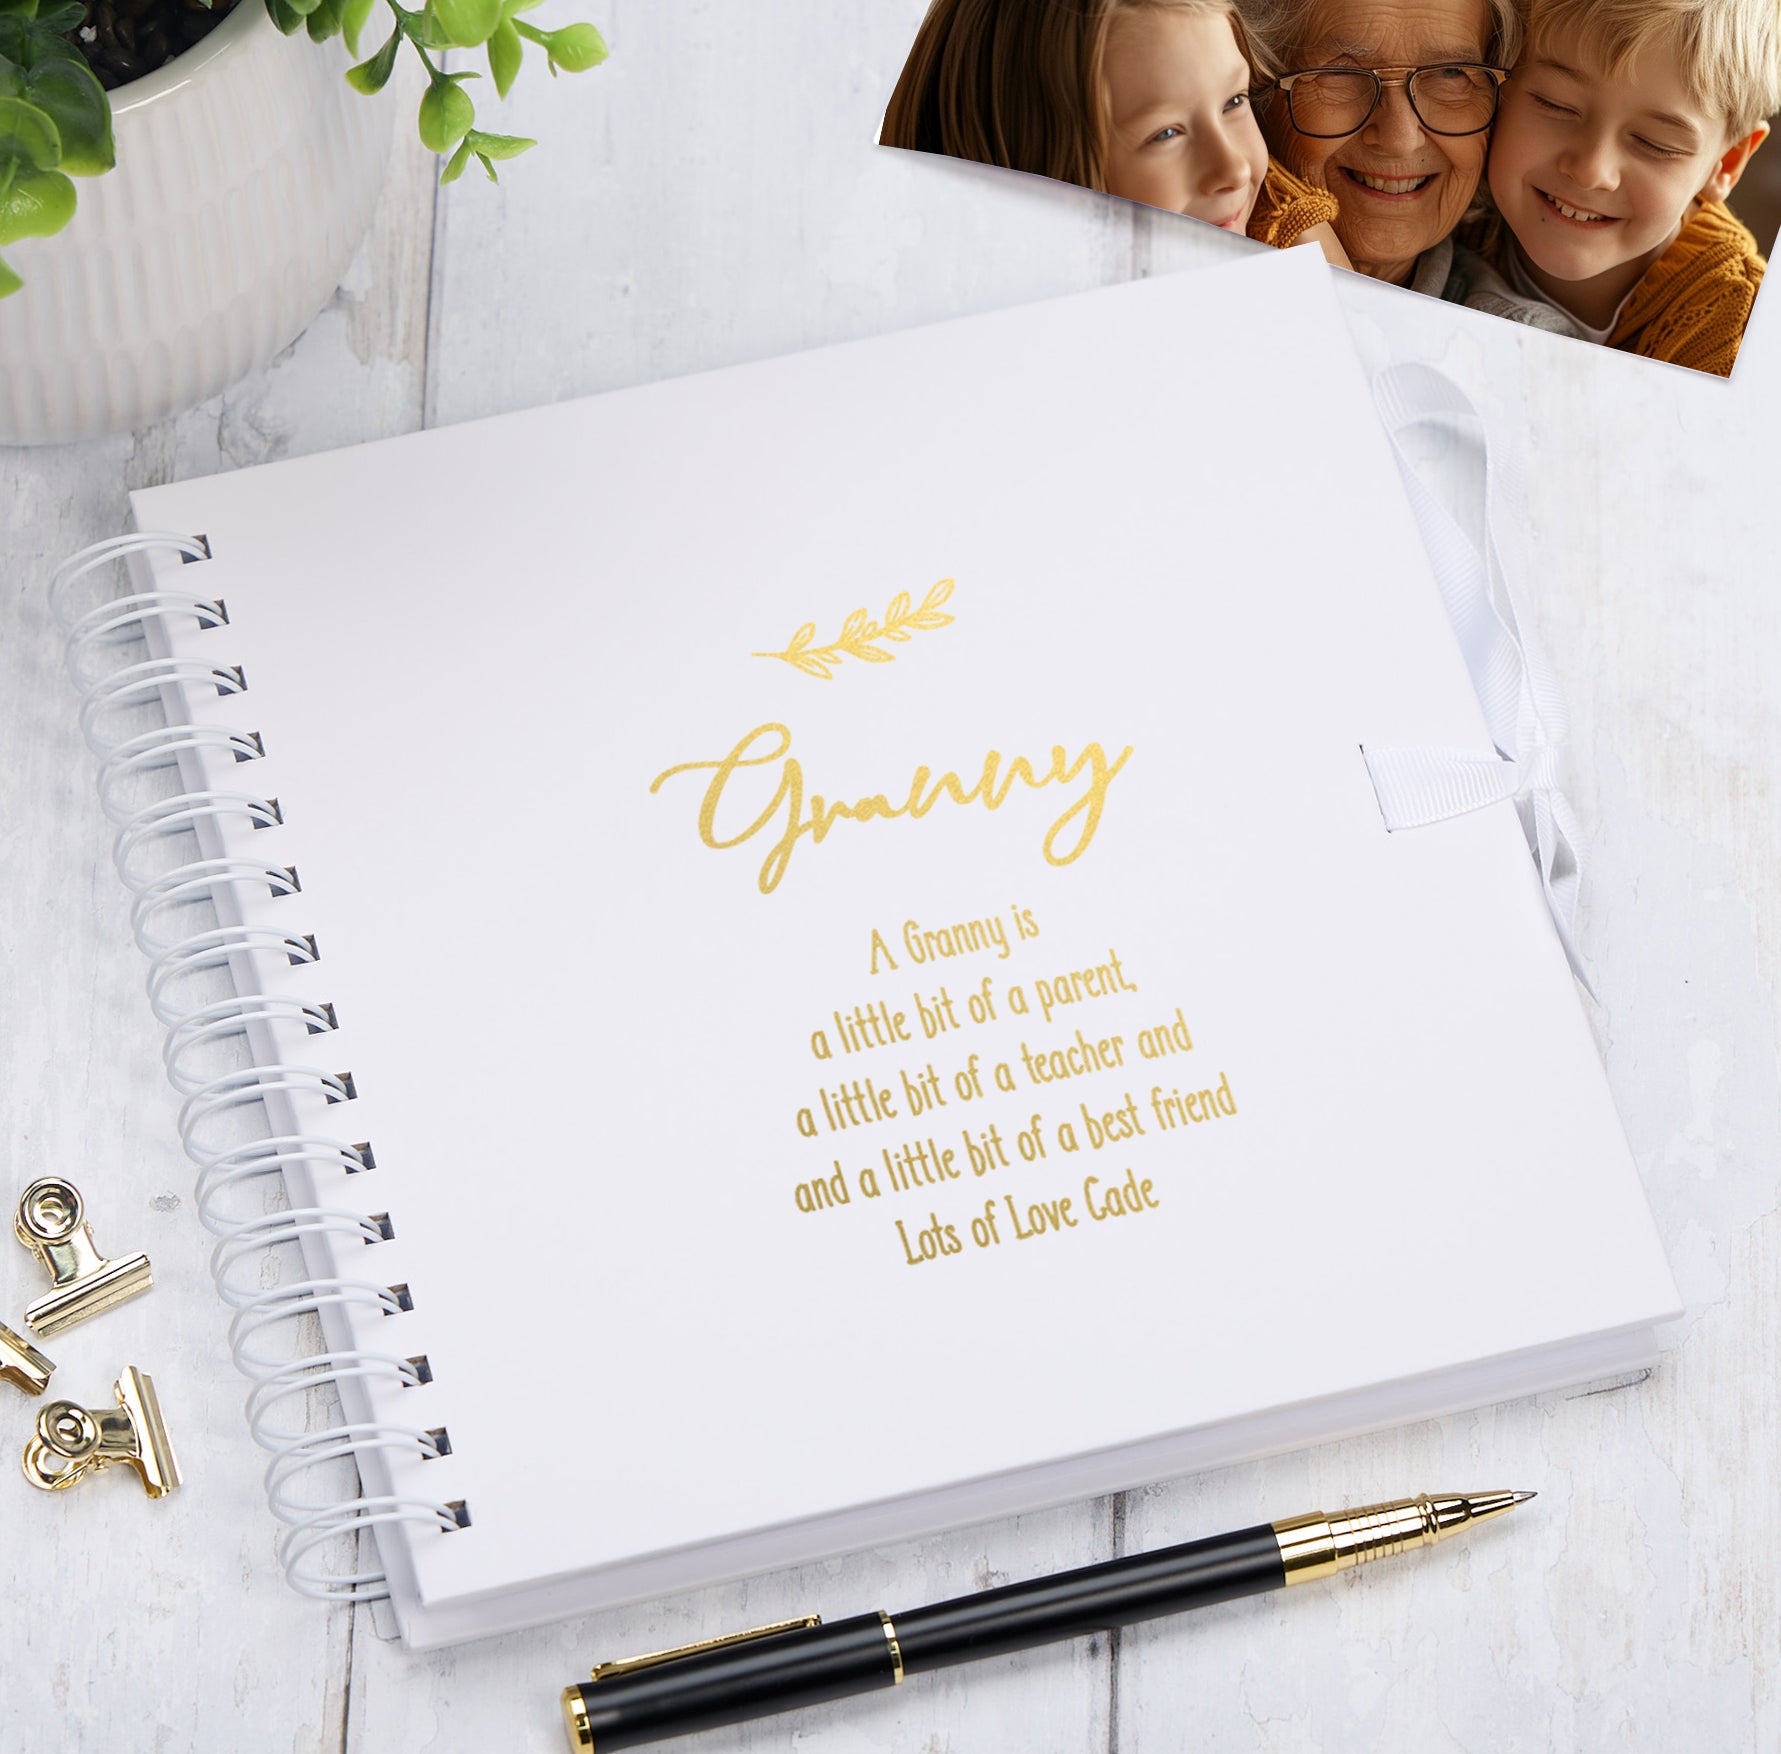 Granny
A Granny is
a little bit of a parent,
a little bit of a teacher and
and a little bit of a best friend
Lots of Love Cade